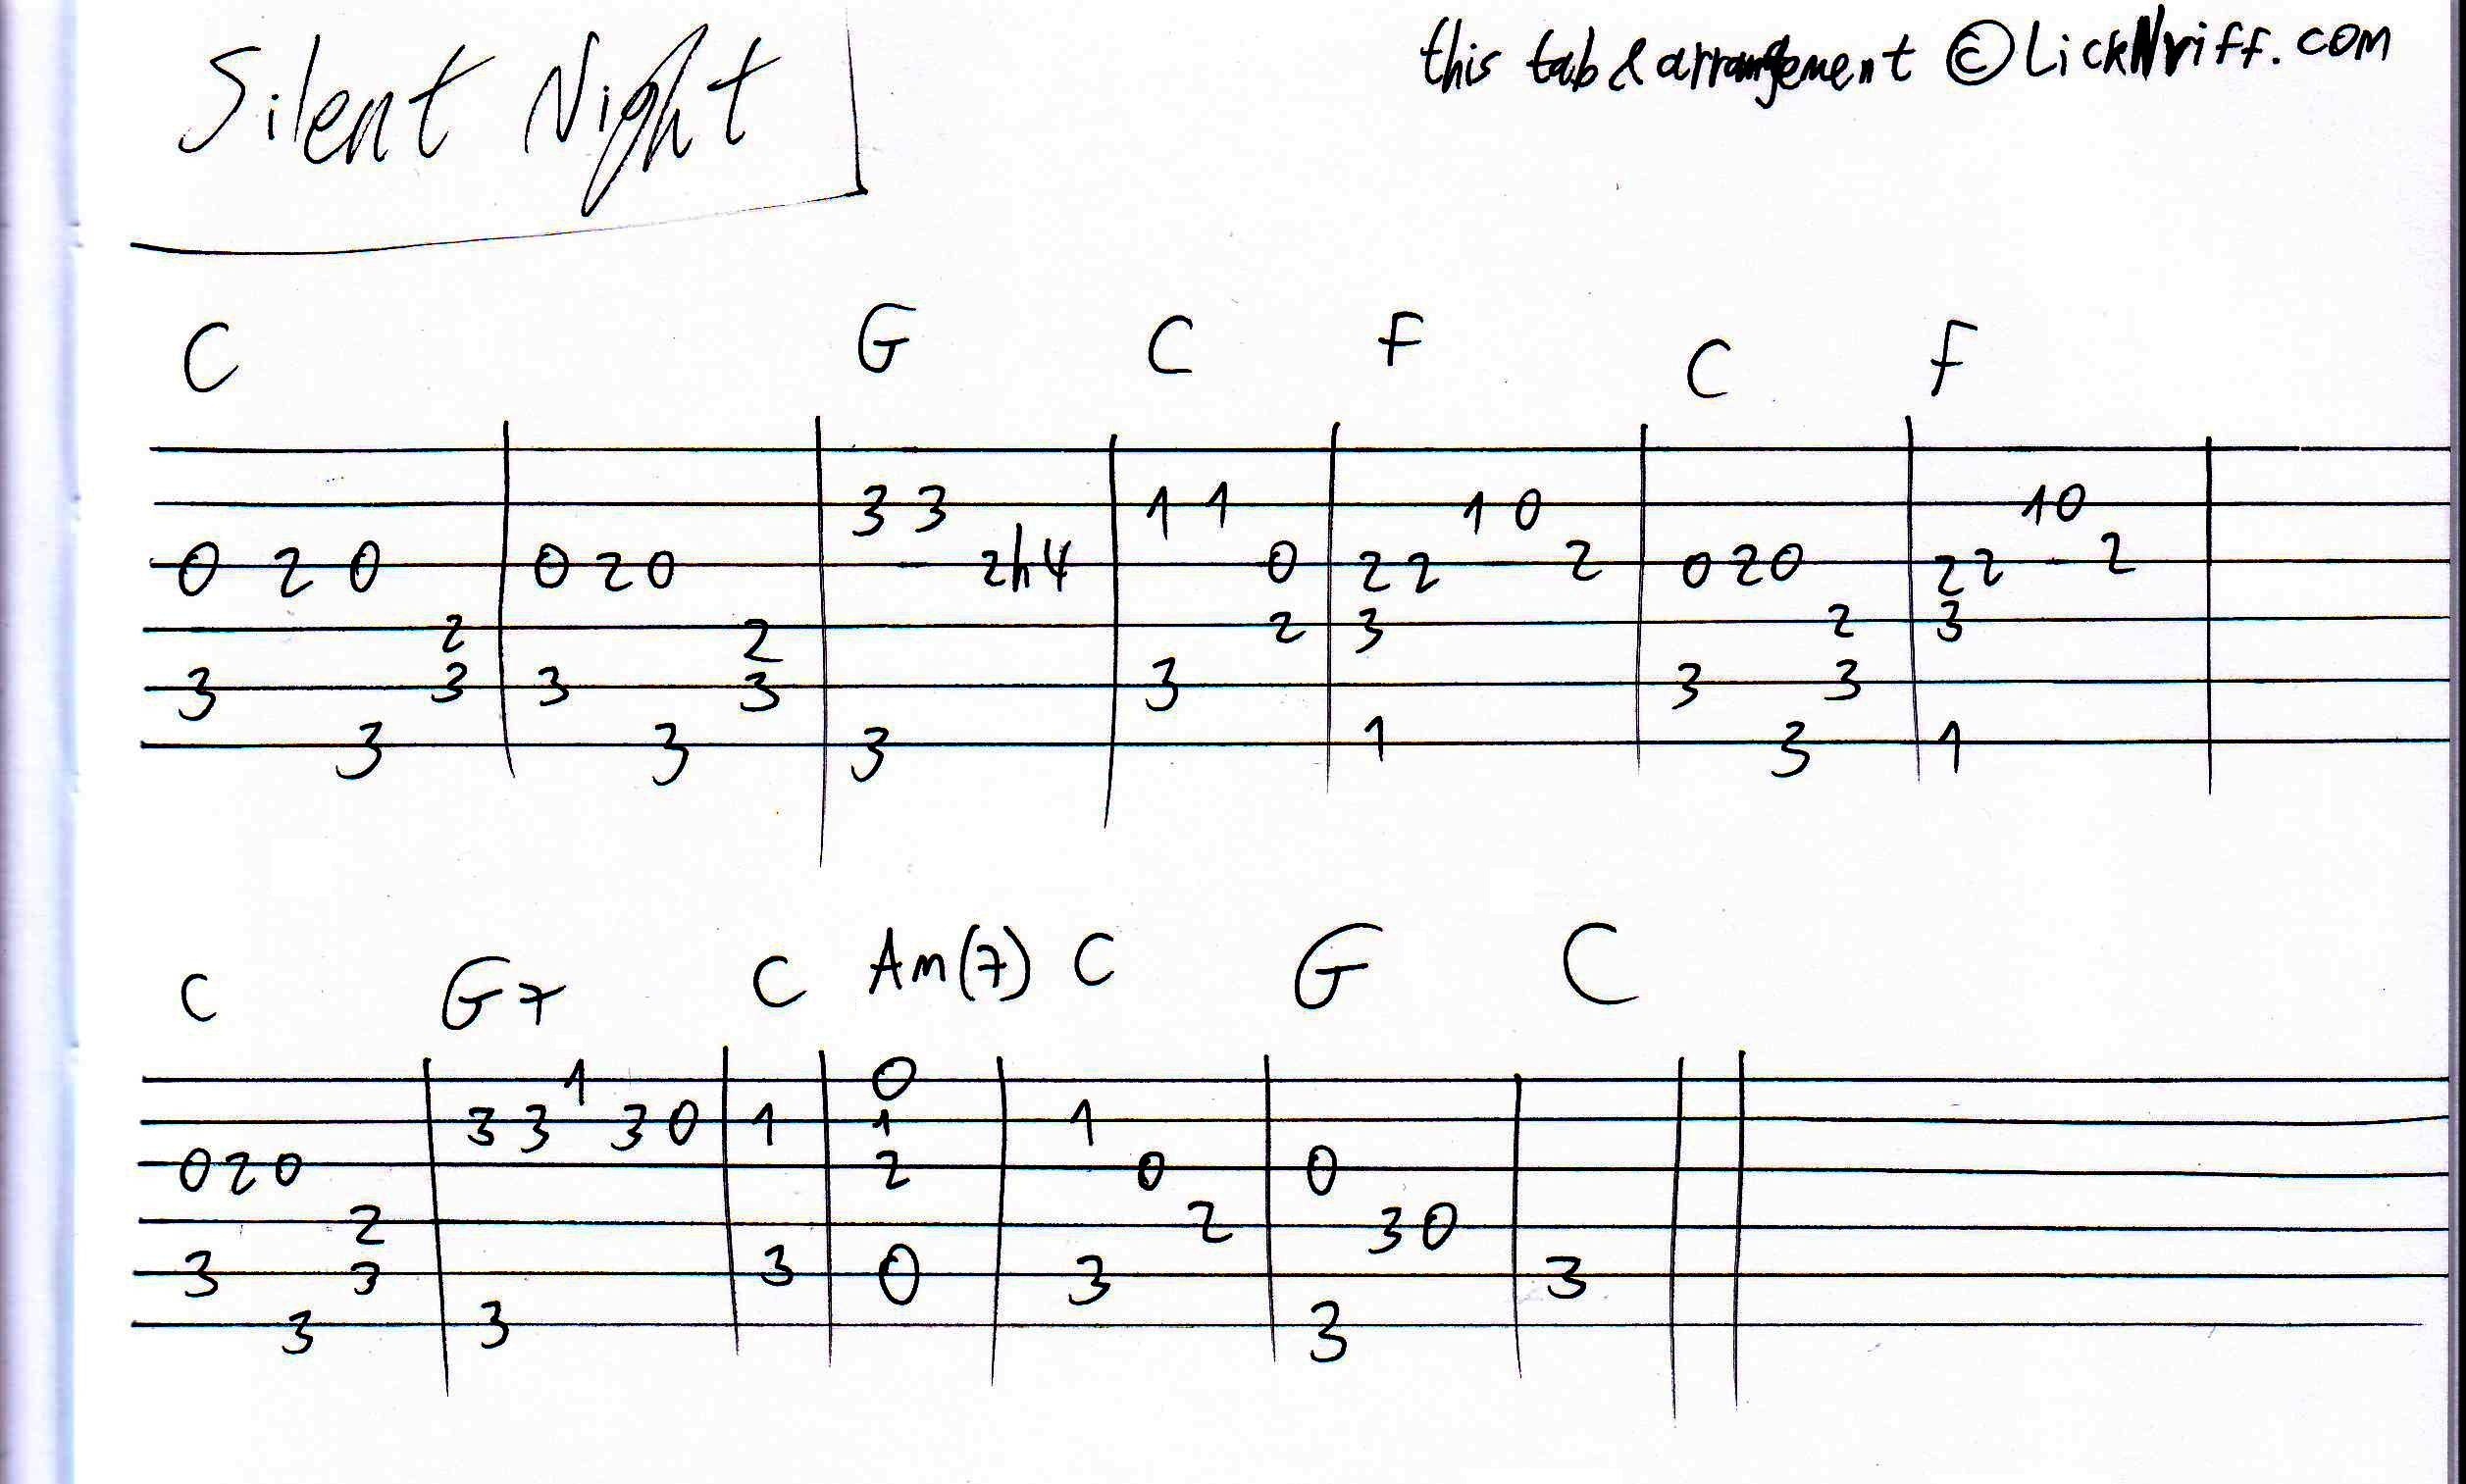 Silent Night
this tab & arrangement © LickNriff.com
C G C F C F
3 3 1 1 1 0 1 0
0 2 0 0 2 0 2h4 0 2 2 2 0 2 0 2 2 2
2 2 2 3 2 3
3 3 3 3 3 3 3
3 3 3 1 3 1
C G7 C Am(7) C G C
1 0
3 3 3 0 1 1 1
0 2 0 2 0 0
2 2 3 0
3 3 3 0 3 3
3 3 3